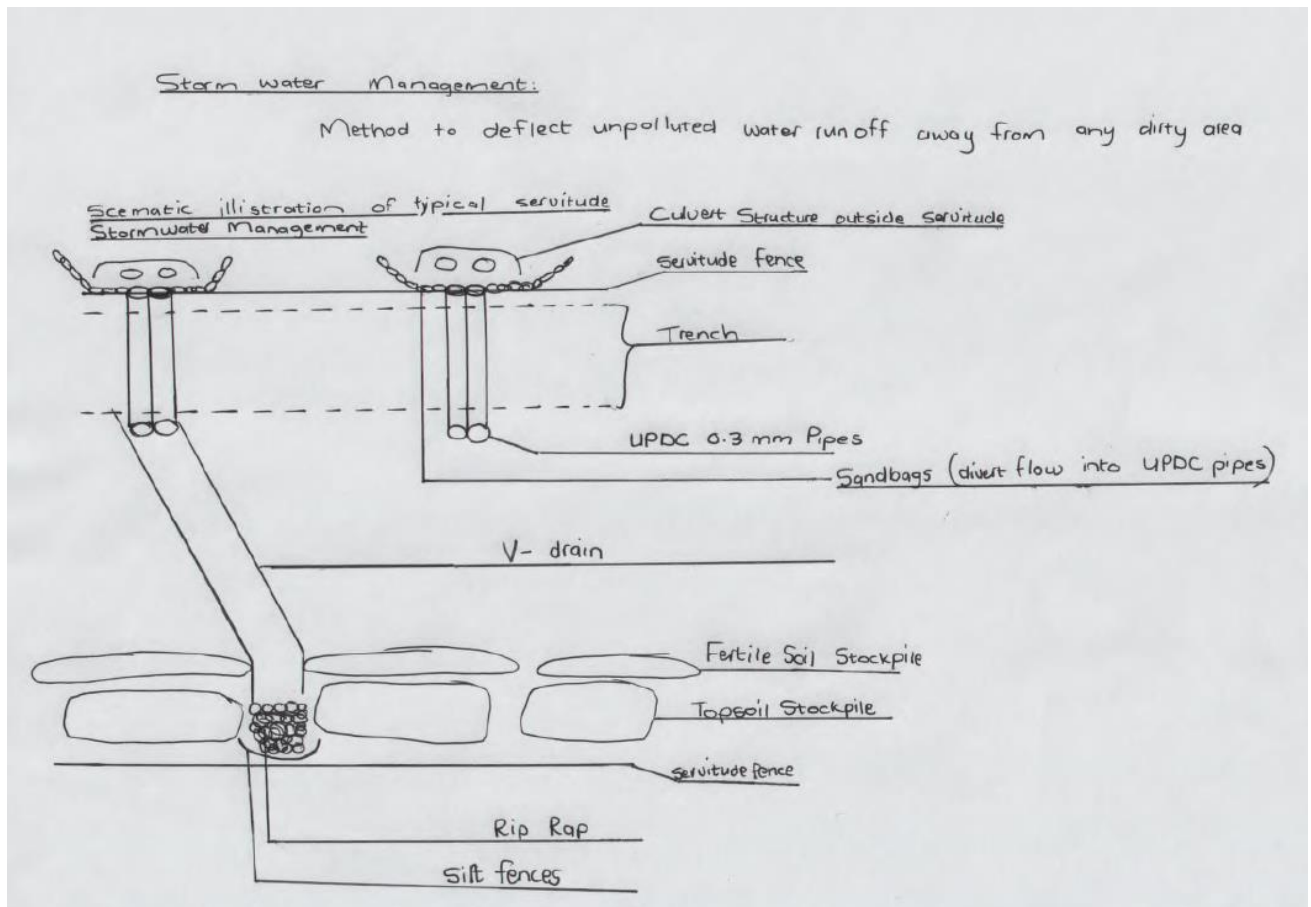 Storm water Management:
Method to deflect unpolluted water run off away from any dirty area
Scematic illistration of typical servitude
Stormwater Management
Culvert Structure outside servitude
servitude fence
Trench
UPDC 0.3 mm Pipes
Sandbags (divert flow into UPDC pipes)
V- drain
Fertile Soil Stockpile
Topsoil Stockpile
servitude fence
Rip Rap
Silt fences